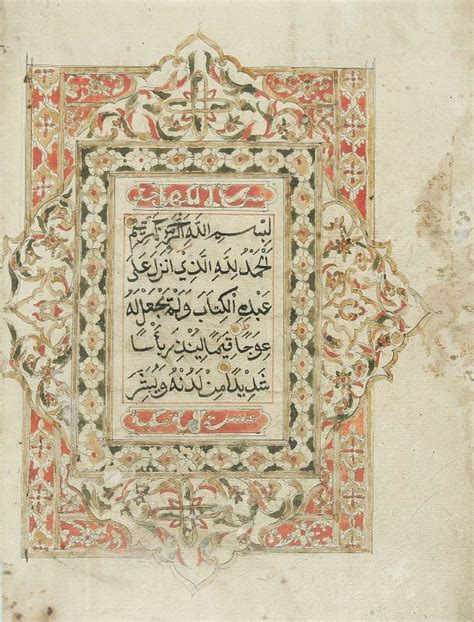 سورة الكهف
بِسْمِ اللَّهِ الرَّحْمَنِ الرَّحِيمِ
الْحَمْدُ لِلَّهِ الَّذِي أَنْزَلَ عَلَى
عَبْدِهِ الْكِتَابَ وَلَمْ يَجْعَلْ لَهُ
عِوَجًا قَيِّمًا لِيُنْذِرَ بَأْسًا
شَدِيدًا مِنْ لَدُنْهُ وَيُبَشِّرَ